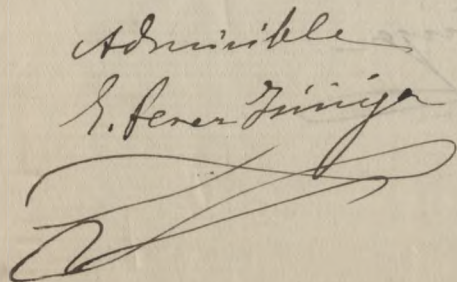 Admisible
E. Perez Zúñiga